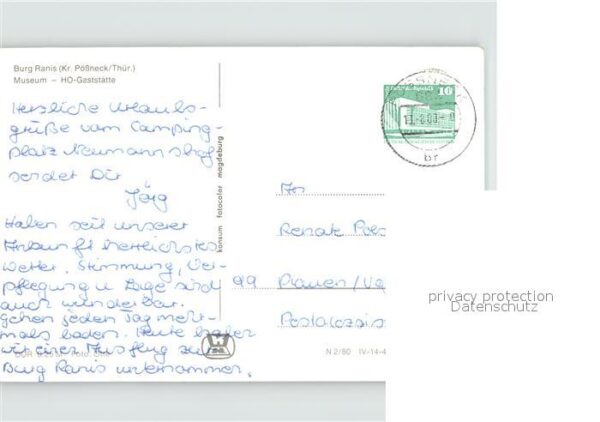 Burg Ranis (Kr. Pößneck/Thür.)
Museum – HO-Gaststätte
Herzliche Urlaubs-
grüße vom Camping-
platz Neumannshof
sendet Dir
Jörg
Haben seit unserer
Ankunft herrlichstes
Wetter. Stimmung, Ver-
pflegung u. Lage sind
auch wunderbar.
Gehen jeden Tag mehr-
mals baden. Heute haben
wir einen Ausflug zur
Burg Ranis unternommen.
konsum fotocolor magdeburg
10
br
An
Renate
99 Plauen/
N 2/80 IV-14-4
privacy protection
Datenschutz